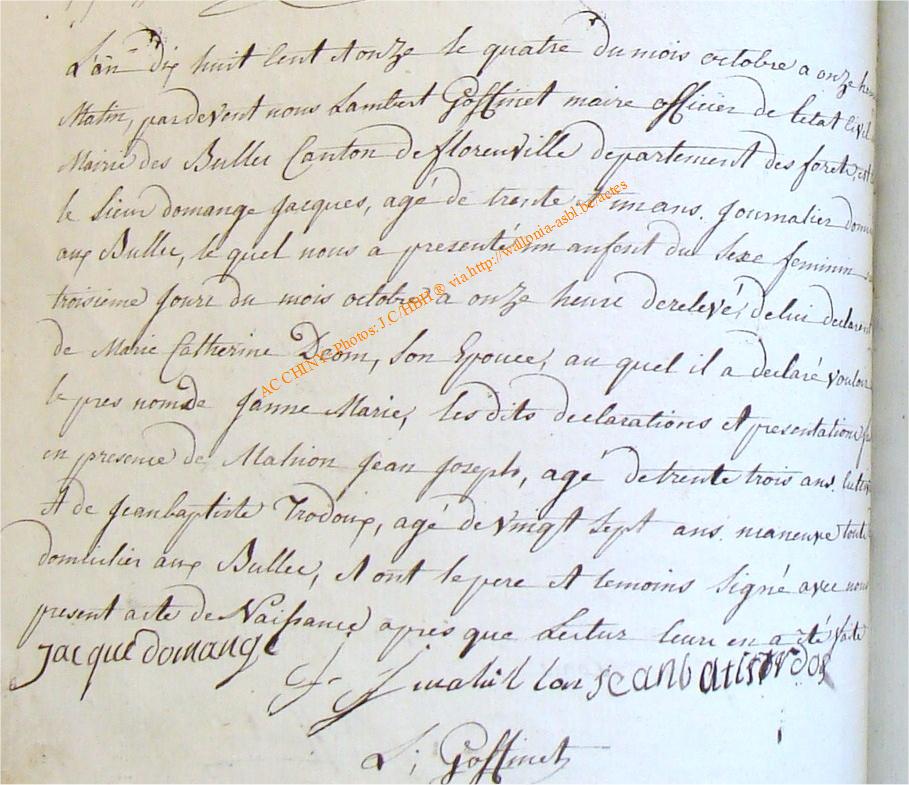 L'an dix huit cent et onze le quatre du mois octobre a onze heu
Matin, pardevent nous Lambert Goffinet maire officier de letat civil
Mairie des Bulles Canton de florenville departement des forets, est
le Sieur domange Jacques, agé de trente et un ans. Journalier domi
aux Bulles, le quel nous a presenté un anfent du sexe feminin
troisieme jours du mois octobre a onze heure derelevé, de lui declarent
de Marie Catherine Deom, son Epouce, au quel il a declaré vouloir
le pres nom de Janne Marie, les dits declarations et presentations
en presence de Mahion Jean Joseph, agé de trente trois ans. cultiv
et de Jeanbaptiste Trodoux, agé de vingt sept ans. maneuvre tout
domicilier aux Bulles, et ont le pere et temoins signé avec nous
present acte de Naissance apres que Lectur leure en a été faite
jacque domange
J J mahillon jeanbatistrdos
L; Goffinet
AC CHINY-Photos: J.C/HBH ® via http://wallonia-asbl.be/actes